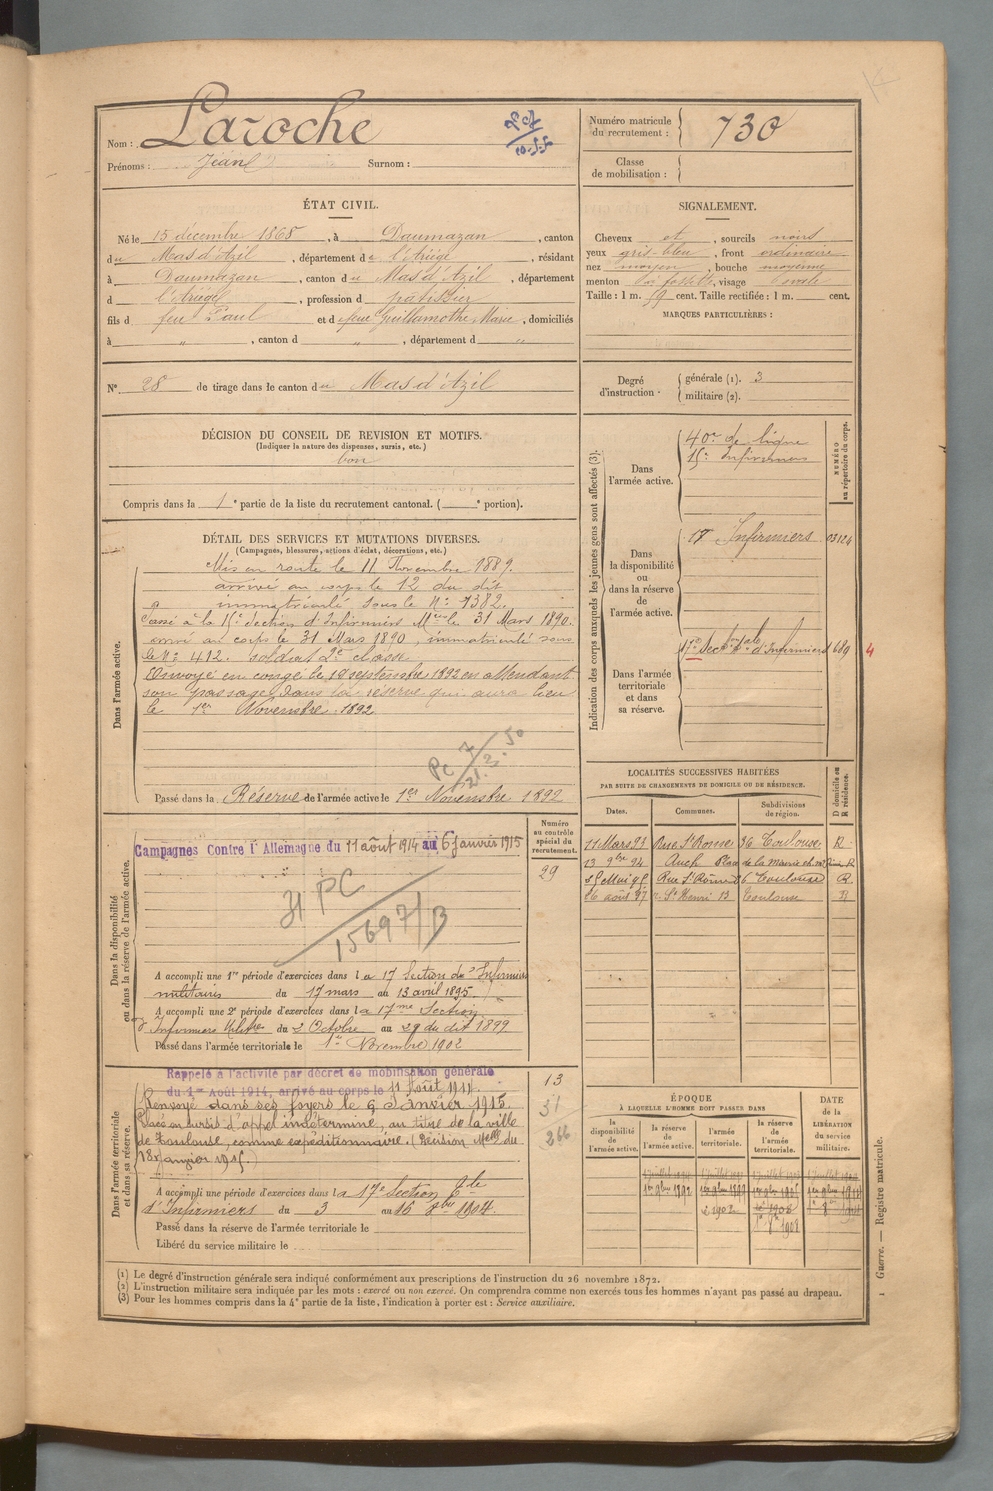 Nom : Laroche
Prénoms : Jean Surnom :
ÉTAT CIVIL.
Né le 15 décembre 1868, à Daumazan, canton
du Mas d'Azil, département de l'Ariège, résidant
à Daumazan, canton du Mas d'Azil, département
d l'Ariège, profession d pâtissier
fils d feu Paul et d feue Guillamothe Marie, domiciliés
à " , canton d " , département d "
N° 28 de tirage dans le canton du Mas d'Azil
DÉCISION DU CONSEIL DE REVISION ET MOTIFS.
(Indiquer la nature des dispenses, sursis, etc.)
bon
Compris dans la 1e partie de la liste du recrutement cantonal. ( e portion).
DÉTAIL DES SERVICES ET MUTATIONS DIVERSES.
(Campagnes, blessures, actions d'éclat, décorations, etc.)
Dans l'armée active.
Mis en route le 11 Novembre 1889.
arrivé au corps le 12 du dit
immatriculé sous le N° 7382.
Passé à la 15e Section d'Infirmiers Mres le 31 Mars 1890.
arrivé au corps le 31 Mars 1890, immatriculé sous
le N° 412. soldat 2e classe
Envoyé en congé le 18 septembre 1892 en attendant
son passage dans la réserve qui aura lieu
le 1er Novembre 1892
Passé dans la Réserve de l'armée active le 1er Novembre 1892
Dans la disponibilité
ou dans la réserve de l'armée active.
Numéro
au contrôle
spécial du
recrutement.
29
Campagnes Contre l'Allemagne du 11 août 1914 au 6 janvier 1915
PC
15697/B
A accompli une 1re période d'exercices dans la 17 Section d'Infirmiers
militaires du 17 mars au 13 avril 1895
A accompli une 2e période d'exercices dans la 17me Section
d'Infirmiers Militres du 2 Octobre au 29 du dit 1899
Passé dans l'armée territoriale le 1er Novembre 1902
Dans l'armée territoriale
et dans sa réserve.
13
51
266
Rappelé à l'activité par décret de mobilisation générale
du 1er Août 1914, arrivé au corps le 11 Août 1914.
Renvoyé dans ses foyers le 6 Janvier 1915.
Placé en sursis d'appel indéterminé, au titre de la ville
de Toulouse, comme expéditionnaire. (Décision Melle du
18 janvier 1915.)
A accompli une période d'exercices dans la 17e Section
d'Infirmiers du 3 au 16 1904.
Passé dans la réserve de l'armée territoriale le
Libéré du service militaire le
Numéro matricule
du recrutement : 730
Classe
de mobilisation :
SIGNALEMENT.
Cheveux et, sourcils noirs
yeux gris-bleu, front ordinaire
nez moyen, bouche moyenne
menton à fossette, visage ovale
Taille : 1 m. 59 cent. Taille rectifiée : 1 m. cent.
MARQUES PARTICULIÈRES :
Degré
d'instruction. générale (1). 3
militaire (2).
Indication des corps auxquels les jeunes gens sont affectés (3).
NUMÉRO
au répertoire du corps.
Dans
l'armée active.
40e de ligne
15e Infirmiers
Dans
la disponibilité
ou
dans la réserve
de
l'armée active.
17 Infirmiers 03124
Dans l'armée
territoriale
et dans
sa réserve.
17e Section d'Infirmiers 1689
4
LOCALITÉS SUCCESSIVES HABITÉES
PAR SUITE DE CHANGEMENTS DE DOMICILE OU DE RÉSIDENCE.
D domicile ou
R résidence.
Dates. Communes. Subdivisions
de région.
11 Mars 93 Rue St Rome 36 Toulouse R
13 9bre 94 Auch Place de la mairie R
Mai 95 Rue St Rome 36 Toulouse R
16 août 97 r. St Henri 13 Toulouse R
ÉPOQUE
À LAQUELLE L'HOMME DOIT PASSER DANS
DATE
de la
LIBÉRATION
du service
militaire.
la
disponibilité
de
l'armée active.
la réserve
de
l'armée active.
l'armée
territoriale.
la réserve
de
l'armée
territoriale.
1er 9bre 1892
1902
1908
Guerre. — Registre matricule.
1
(1) Le degré d'instruction générale sera indiqué conformément aux prescriptions de l'instruction du 26 novembre 1872.
(2) L'instruction militaire sera indiquée par les mots : exercé ou non exercé. On comprendra comme non exercés tous les hommes n'ayant pas passé au drapeau.
(3) Pour les hommes compris dans la 4e partie de la liste, l'indication à porter est : Service auxiliaire.